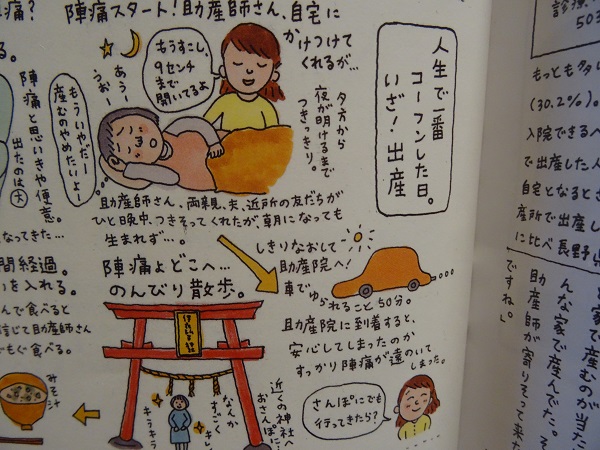 人生で一番
コーフンした日。
いざ!出産
陣痛スタート!助産師さん、自宅に
かけつけて
くれるが…
もうすこし、
9センチ
まで
開いてるよ
あうー
うおー
もういやだー
産むのやめたいよー
夕方から
夜が明けるまで
つきっきり。
陣痛と思いきや便意。
出たのは大
助産師さん、両親、夫、近所の友だちが
ひと晩中、つきそってくれたが、朝になっても
生まれず…。
しきりなおして
助産院へ!
車でゆられること50分。
助産院に到着すると、
安心してしまったのか
すっかり陣痛が遠のいて
しまった。
さんぽにでも
行ってきたら?
陣痛よどこへ…
のんびり散歩。
近くの神社へ
おさんぽに…
なんか
すごく
キレイ
キラキラ
みそ汁
痛?
る。
なってきた…
間経過。
いを入れる。
んで食べると
信じて助産師さん
でもぐ食べる。
診療
503
もっとも多い
(30.2%)。
入院できるベ
で出産した人
自宅となるとさ
産所で出産し
に比べ長野県
ですね。」
助産師が寄りそって来た
んな家で産んだ。そ
家で産むのが当た